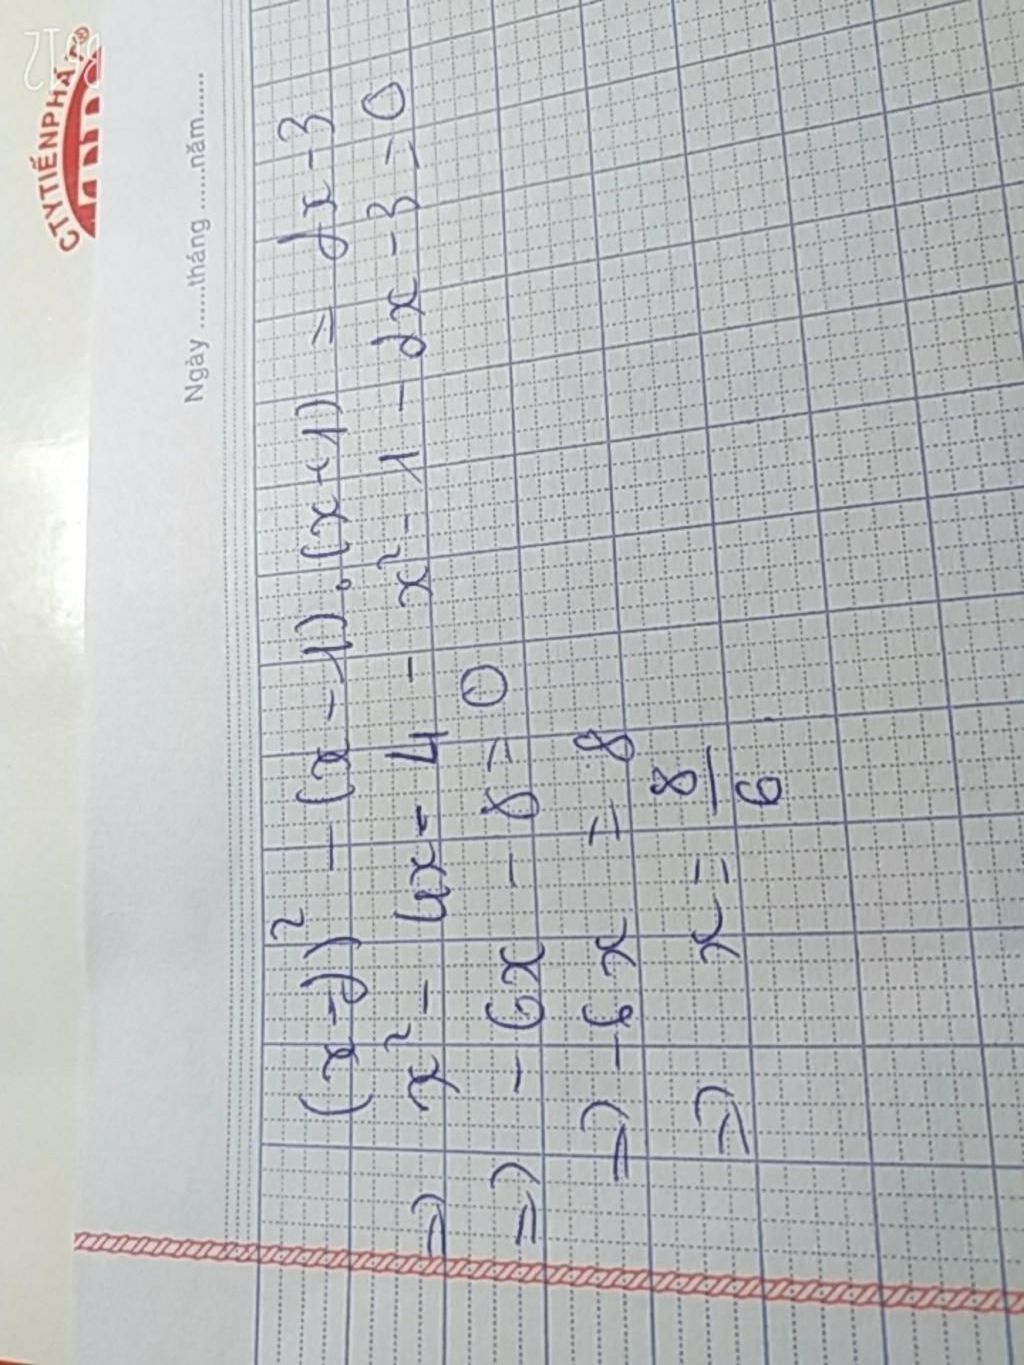 CTYTIẾNPHÁT®
Ngày ......tháng ......năm......
(x-2)² - (x-1).(x+1) = 2x-3
=) x² - 4x - 4 - x² - 1 - 2x - 3 = 0
=) - 6x - 8 = 0
=) -6x = 8
=) x = 8/6